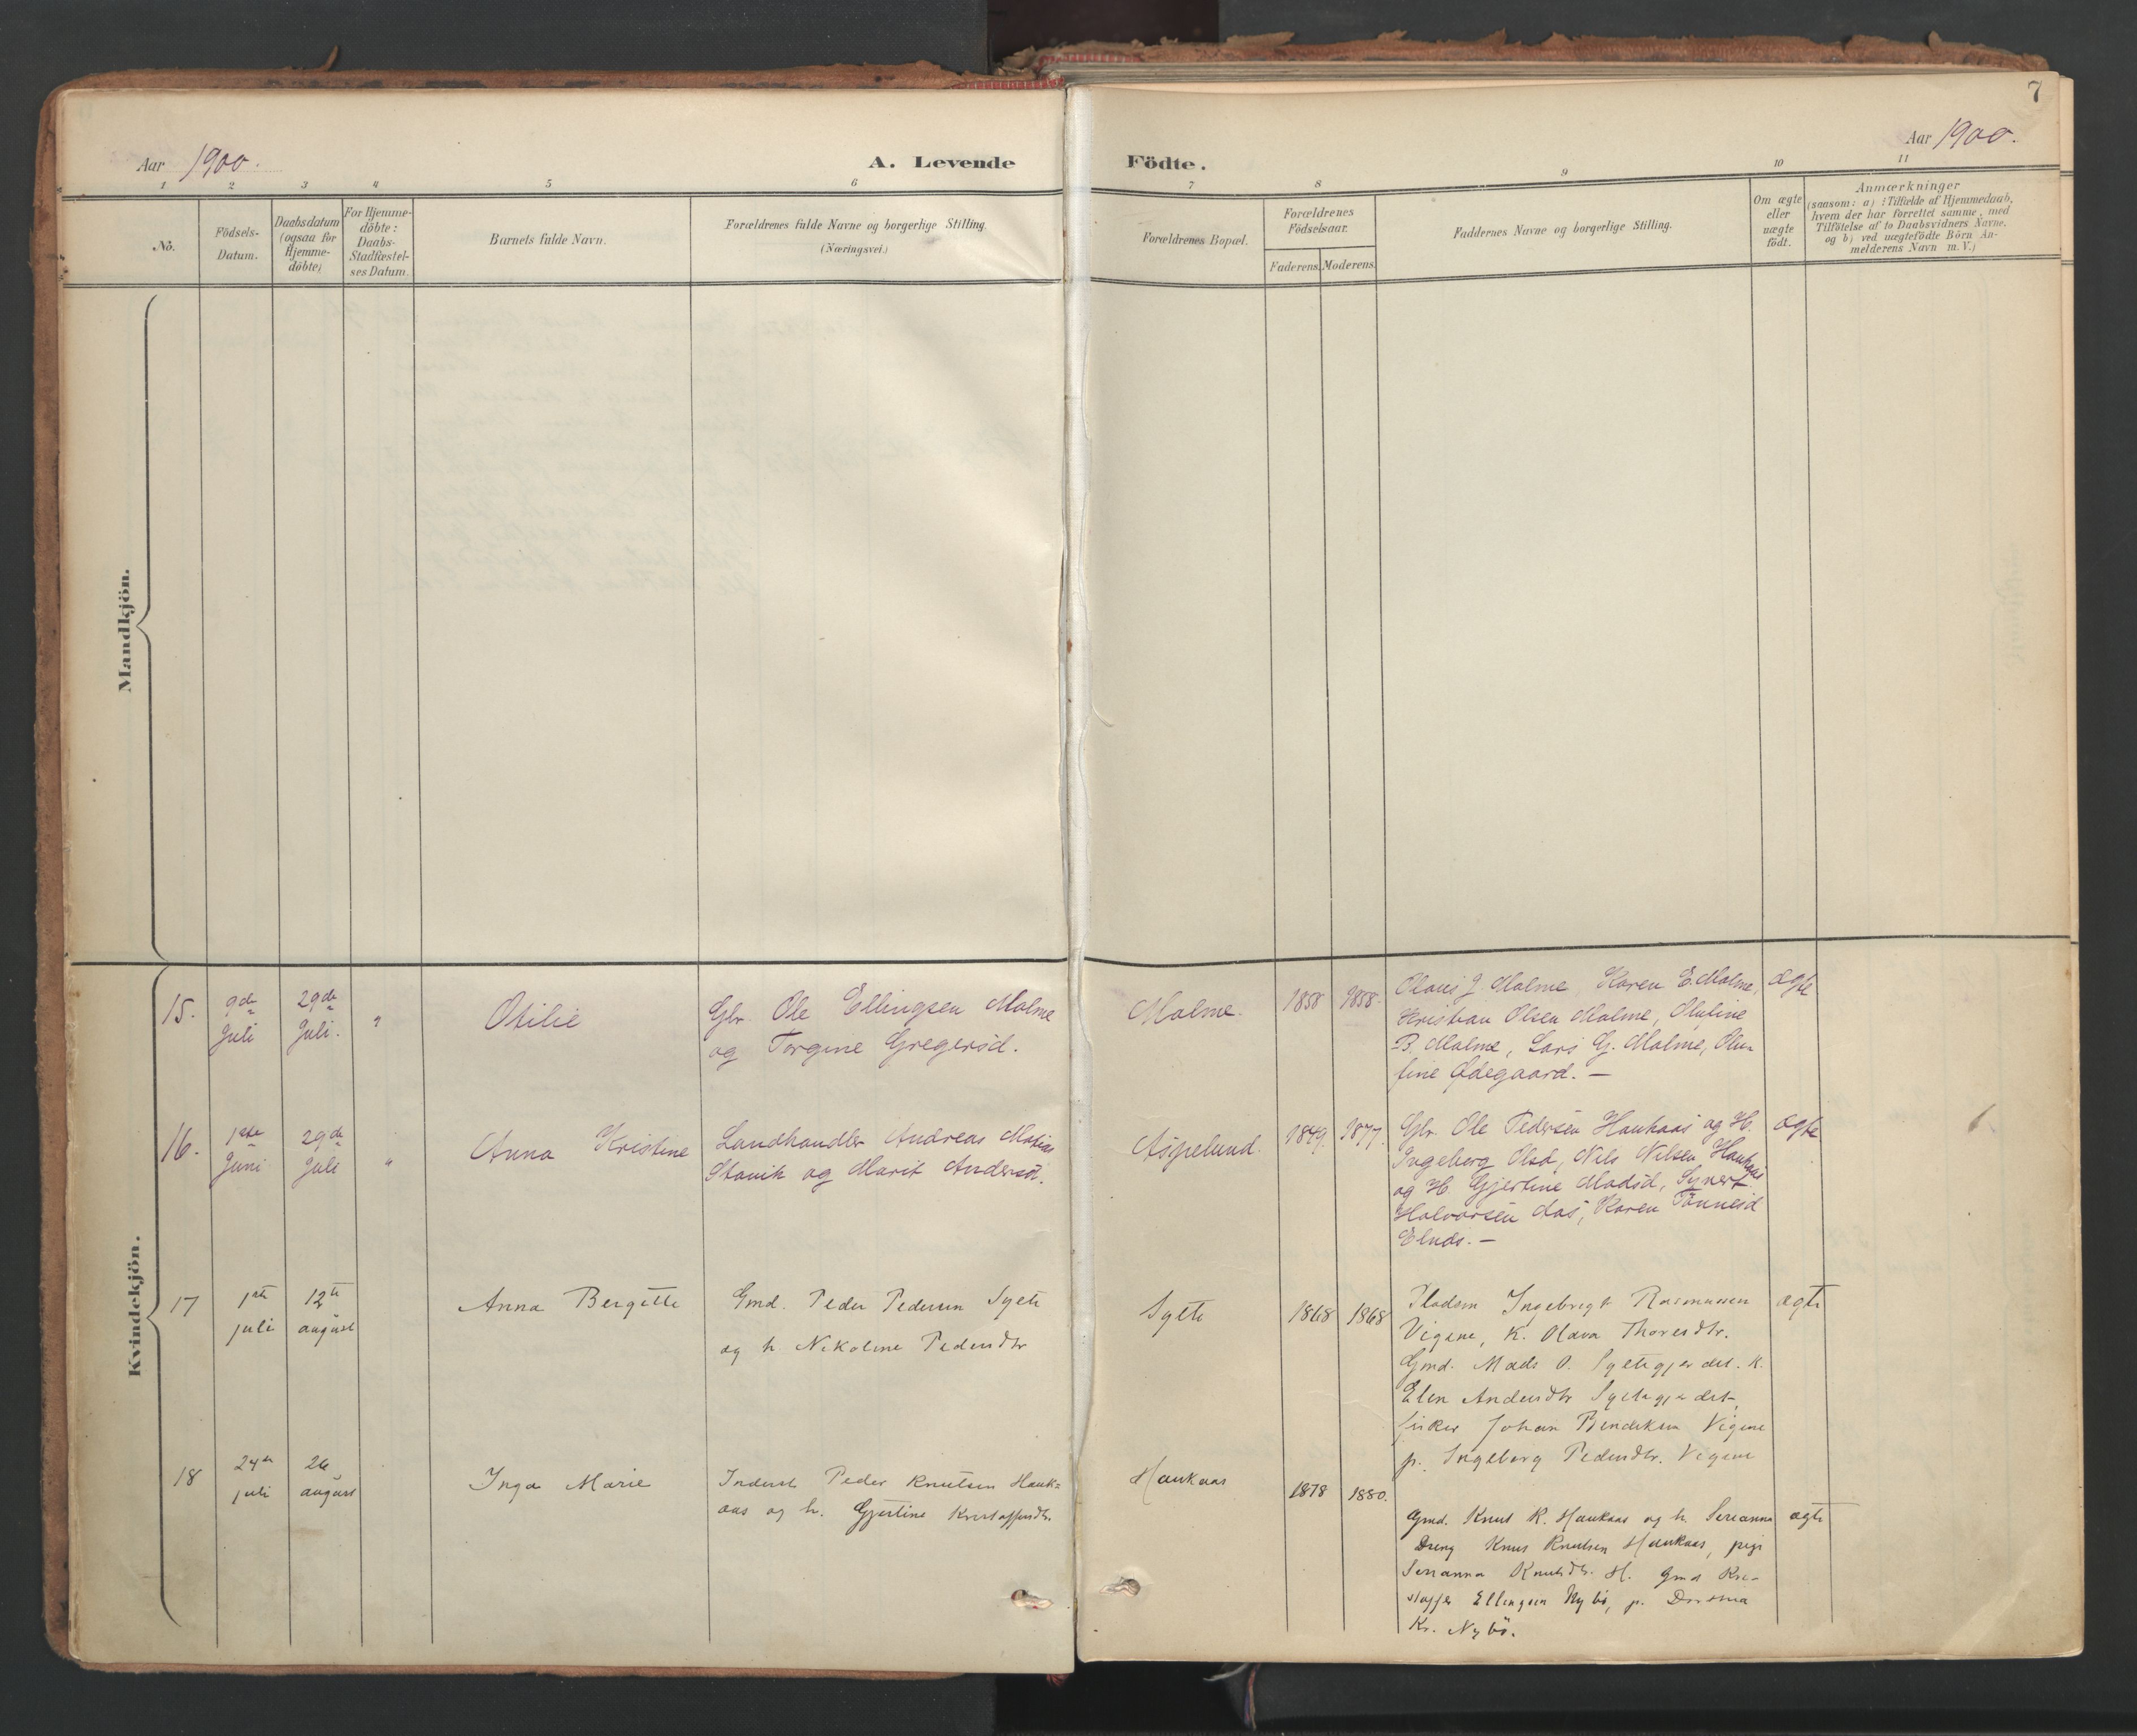 7
Aar 1900.
A. Levende
Födte.
Aar 1900.
1 2 3 4 5 6 7 8 9 10 11
No.
Födsels-
Datum.
Daabsdatum
(ogsaa for
Hjemme-
döbte)
For Hjemme-
döbte:
Daabs-
Stadfæstel-
ses Datum.
Barnets fulde Navn.
Forældrenes fulde Navne og borgerlige Stilling.
(Næringsvei.)
Forældrenes Bopæl.
Forældrenes
Födselsaar.
Faderens. Moderens.
Faddernes Navne og borgerlige Stilling.
Om ægte
eller
uægte
födt.
Anmærkninger
(saasom: a) i Tilfælde af Hjemmedaab,
hvem der har forrettet samme, med
Tilföielse af to Daabsvidners Navne,
og b) ved uægtefödte Börn An-
melderens Navn m. V.)
Mandkjön.
Kvindekjön.
15.
9de
Juli
29de
Juli.
"
Otilie
Gbr. Ole Ellingsen Malme
og Torgine Gregersd.
Malme.
1858
1858.
Olaus J. Malme, Karen E. Malme,
Kristian Olsen Malme, Olufine
B. Malme, Lars G. Malme, Olu-
fine Ødegaard. —
ægte
16.
1ste
Juni
29de
Juli
"
Anna Kristine
Landhandler Andreas
Stavik og Marit Andersd.
Aspelund.
1849.
1877.
Gbr. Ole Pedersen Haukaas og H.
Ingeborg Olsd, Nils Nilsen Haukaas
og H. Gjertine Madsd, Synert
Halvorsen Aas, Karen Tønnesd
ægte
17
1ste
juli
12te
august
Anna Bergitte
Gmd. Peder Pedersen Sylte
og h. Nikoline Pedersdtr
Sylte
1868
1868
Pladsm Ingebrigt Rasmussen
Vigene, K. Olava Thoresdtr.
Gmd. Mads O. Syltegjerdet. K.
Elen Andersdtr Syltegjerdet,
fisker Johan Bendiksen Vigene
p. Ingeborg Pedersdtr. Vigene
ægte
18
24de
juli
26
august
Inga Marie
Inderst Peder Knutsen Hauk=
aas og h. Gjertine Kristoffersdtr.
Haukaas
1878
1880.
Gmd. Knut K. Haukaas og h. Serianna
Dreng Knut Knutsen Haukaas, pige
Serianna Knutsdtr. H. Gmd Kri-
stoffer Ellingsen Nybö, p.
Kr. Nybö.
ægte